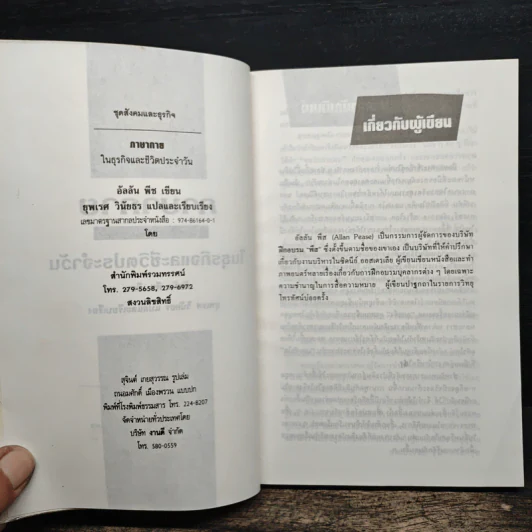 ชุดสังคมและธุรกิจ
ภาษากาย
ในธุรกิจและชีวิตประจำวัน
อัลลัน พีซ เขียน
ยุพเรศ วินัยธร แปลและเรียบเรียง
เลขมาตรฐานสากลประจำหนังสือ : 974-86164-0-1
โดย
สำนักพิมพ์รวมทรรศน์
โทร. 279-5658, 279-6972
สงวนลิขสิทธิ์
สุจินต์ เกยสุวรรณ รูปเล่ม
ถนอมศักดิ์ เมืองพรวน แบบปก
พิมพ์ที่โรงพิมพ์ธรรมสาร โทร. 224-8207
จัดจำหน่ายทั่วประเทศโดย
บริษัท งานดี จำกัด
โทร. 580-0559
เกี่ยวกับผู้เขียน
อัลลัน พีส (Allan Pease) เป็นกรรมการผู้จัดการของบริษัท
ฝึกอบรม "พีส" ซึ่งตั้งขึ้นตามชื่อของเขาเอง เป็นบริษัทที่ให้คำปรึกษา
เกี่ยวกับงานบริหารในซิดนีย์ ออสเตรเลีย ผู้เขียนเขียนหนังสือและทำ
ภาพยนตร์หลายเรื่องเกี่ยวกับการฝึกอบรมบุคลากรต่าง ๆ โดยเฉพาะ
ความชำนาญในการสื่อความหมาย ผู้เขียนปาฐกถาในรายการวิทยุ
โทรทัศน์บ่อยครั้ง